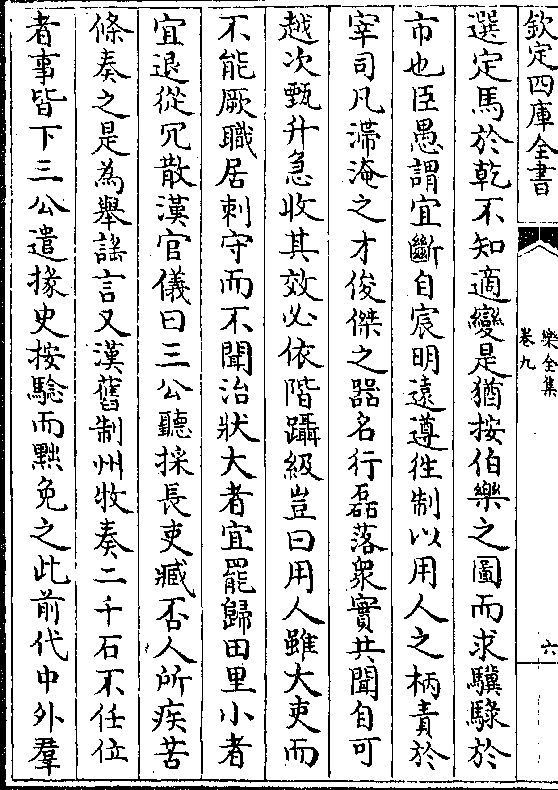 欽定四庫全書
樂全集
卷九
六
選定馬於乾不知適變是猶按伯樂之圖而求驥騄於
市也臣愚謂宜斷自宸明遠遵徃制以用人之柄責於
宰司凡滯淹之才俊傑之器名行磊落衆實共聞自可
越次甄升急收其效必依階躡級豈曰用人雖大吏而
不能厥職居刺守而不聞治狀大者宜罷歸田里小者
宜退從冗散漢官儀曰三公聽採長吏臧否人所疾苦
條奏之是為舉謡言又漢舊制州牧奏二千石不任位
者事皆下三公遣掾史按驗而黜免之此前代中外羣